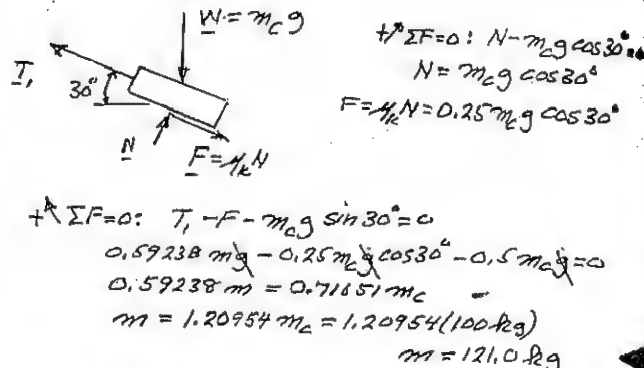 W = m_c g
T₁
30°
N
F = μ_k N
+↗ ΣF=0: N - m_c g cos30°
N = m_c g cos30°
F = μ_k N = 0.25 m_c g cos30°
+↖ ΣF=0: T₁ - F - m_c g sin30° = 0
0.59238 mg - 0.25 m_c g cos30° - 0.5 m_c g = 0
0.59238 m = 0.71651 m_c
m = 1.20954 m_c = 1.20954(100 kg)
m = 121.0 kg